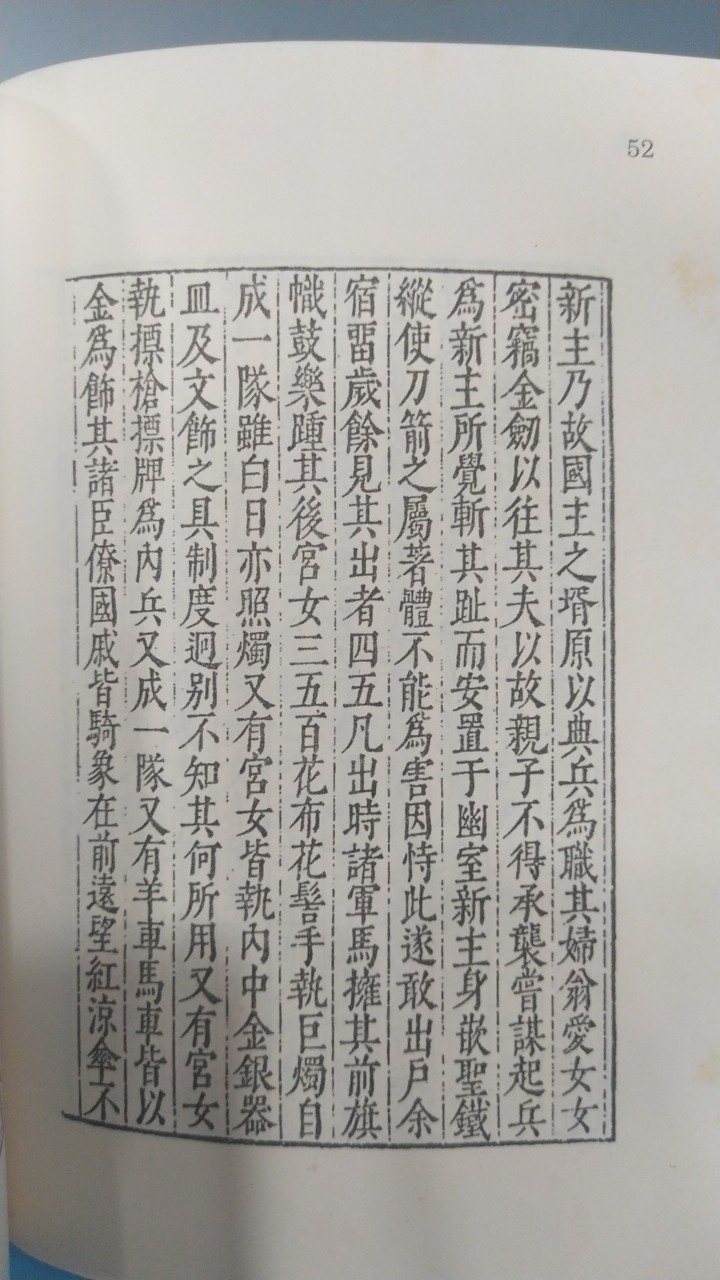 52
新主乃故國主之壻原以典兵為職其婦翁愛女女
密竊金劒以往其夫以故親子不得承襲嘗謀起兵
為新主所覺斬其趾而安置于幽室新主身嵌聖鐵
縱使刀箭之屬著體不能為害因恃此遂敢出戶余
宿畱歲餘見其出者四五凡出時諸軍馬擁其前旗
幟鼓樂踵其後宮女三五百花布花髻手執巨燭自
成一隊雖白日亦照燭又有宮女皆執內中金銀器
皿及文飾之具制度迥别不知其何所用又有宮女
執摽槍摽牌為內兵又成一隊又有羊車馬車皆以
金為飾其諸臣僚國戚皆騎象在前遠望紅凉傘不